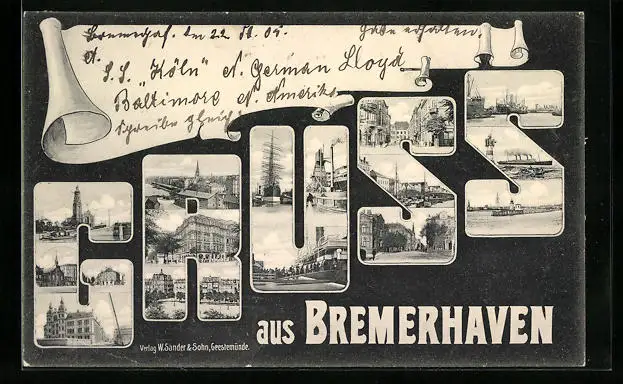 Bremerhaf. den 22 10. 05. Gabe erhalten.
A.
S. S. "Köln" N. German Lloyd
Baltimore N. Amerika
Schreibe gleich
GRUSS
aus BREMERHAVEN
Verlag W. Sander & Sohn, Geestemünde.